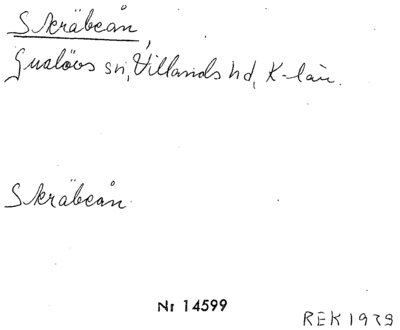 Skräbeån,
Gualövs sn, Villands hd, K-län.
Skräbeån
Nr 14599
REK 1929